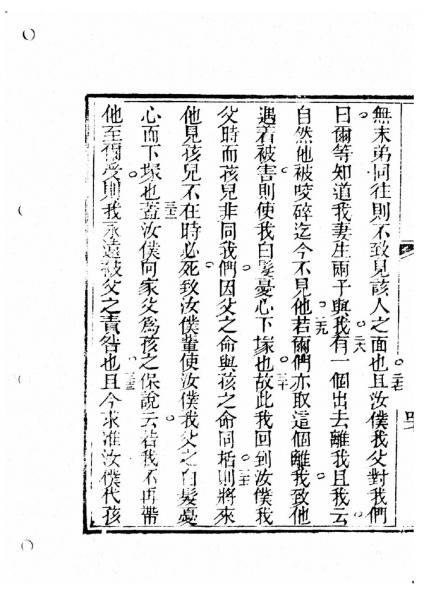 無末弟同往則不致見該人之面也且汝僕我父對我們
曰爾等知道我妻生兩子與我有一個出去離我且我云
自然他被咬碎迄今不見他若爾們亦取這個離我致他
遇着被害則使我白髮憂心下塚也故此我回到汝僕我
父時而孩兒非同我們因父之命與孩之命同栝則將來
他見孩兒不在時必死致汝僕輩使汝僕我父之白髮憂
心而下塚也蓋汝僕向家父為孩之保說云若我不再帶
他至爾受則我永遠被父之責咎也且今求准汝僕代孩